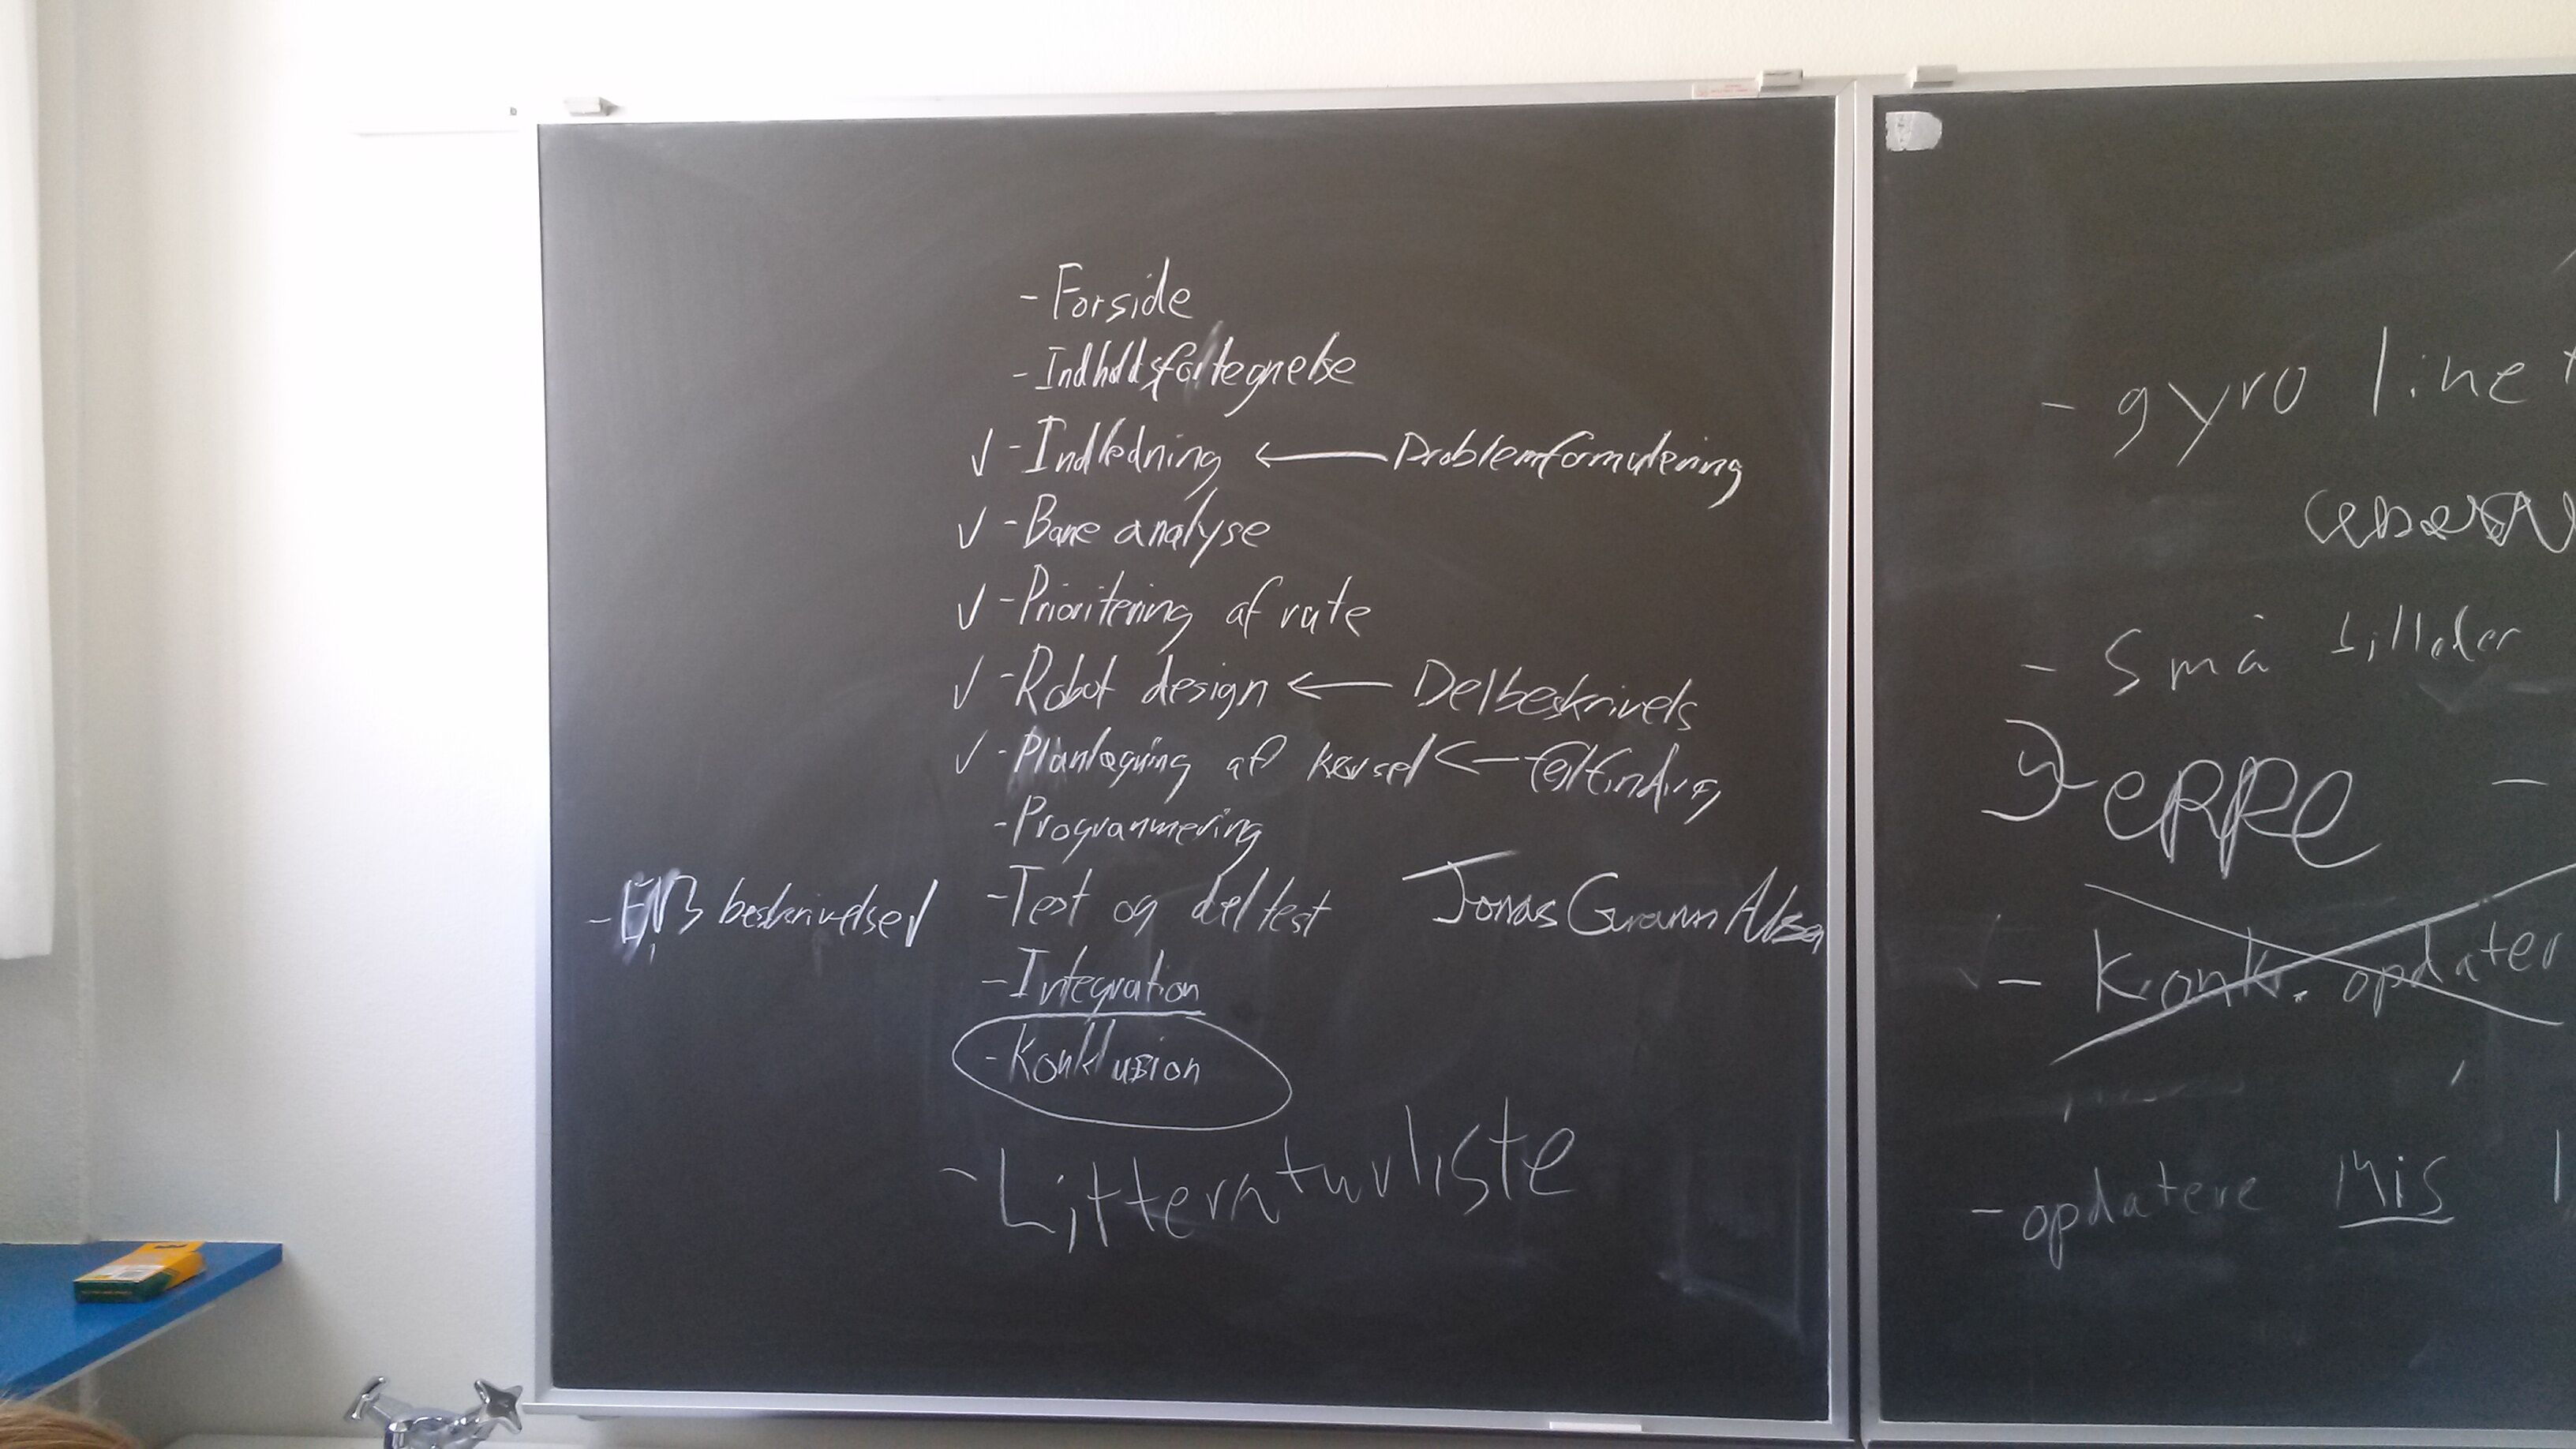 - Forside
- Indholdsfortegnelse
✓ - Indledning ← Problemformulering
✓ - Bane analyse
✓ - Prioritering af rute
✓ - Robot design ← Delbeskrivels
✓ - Planlægning af kørsel ← fejlfinding
- Programmering
- EV3 beskrivelse ✓
- Test og deltest
Jonas
- Integration
- Konklusion
- Litteraturliste
- gyro line
- Små billeder
Jeppe -
- Konk. opdater
- opdatere Mis